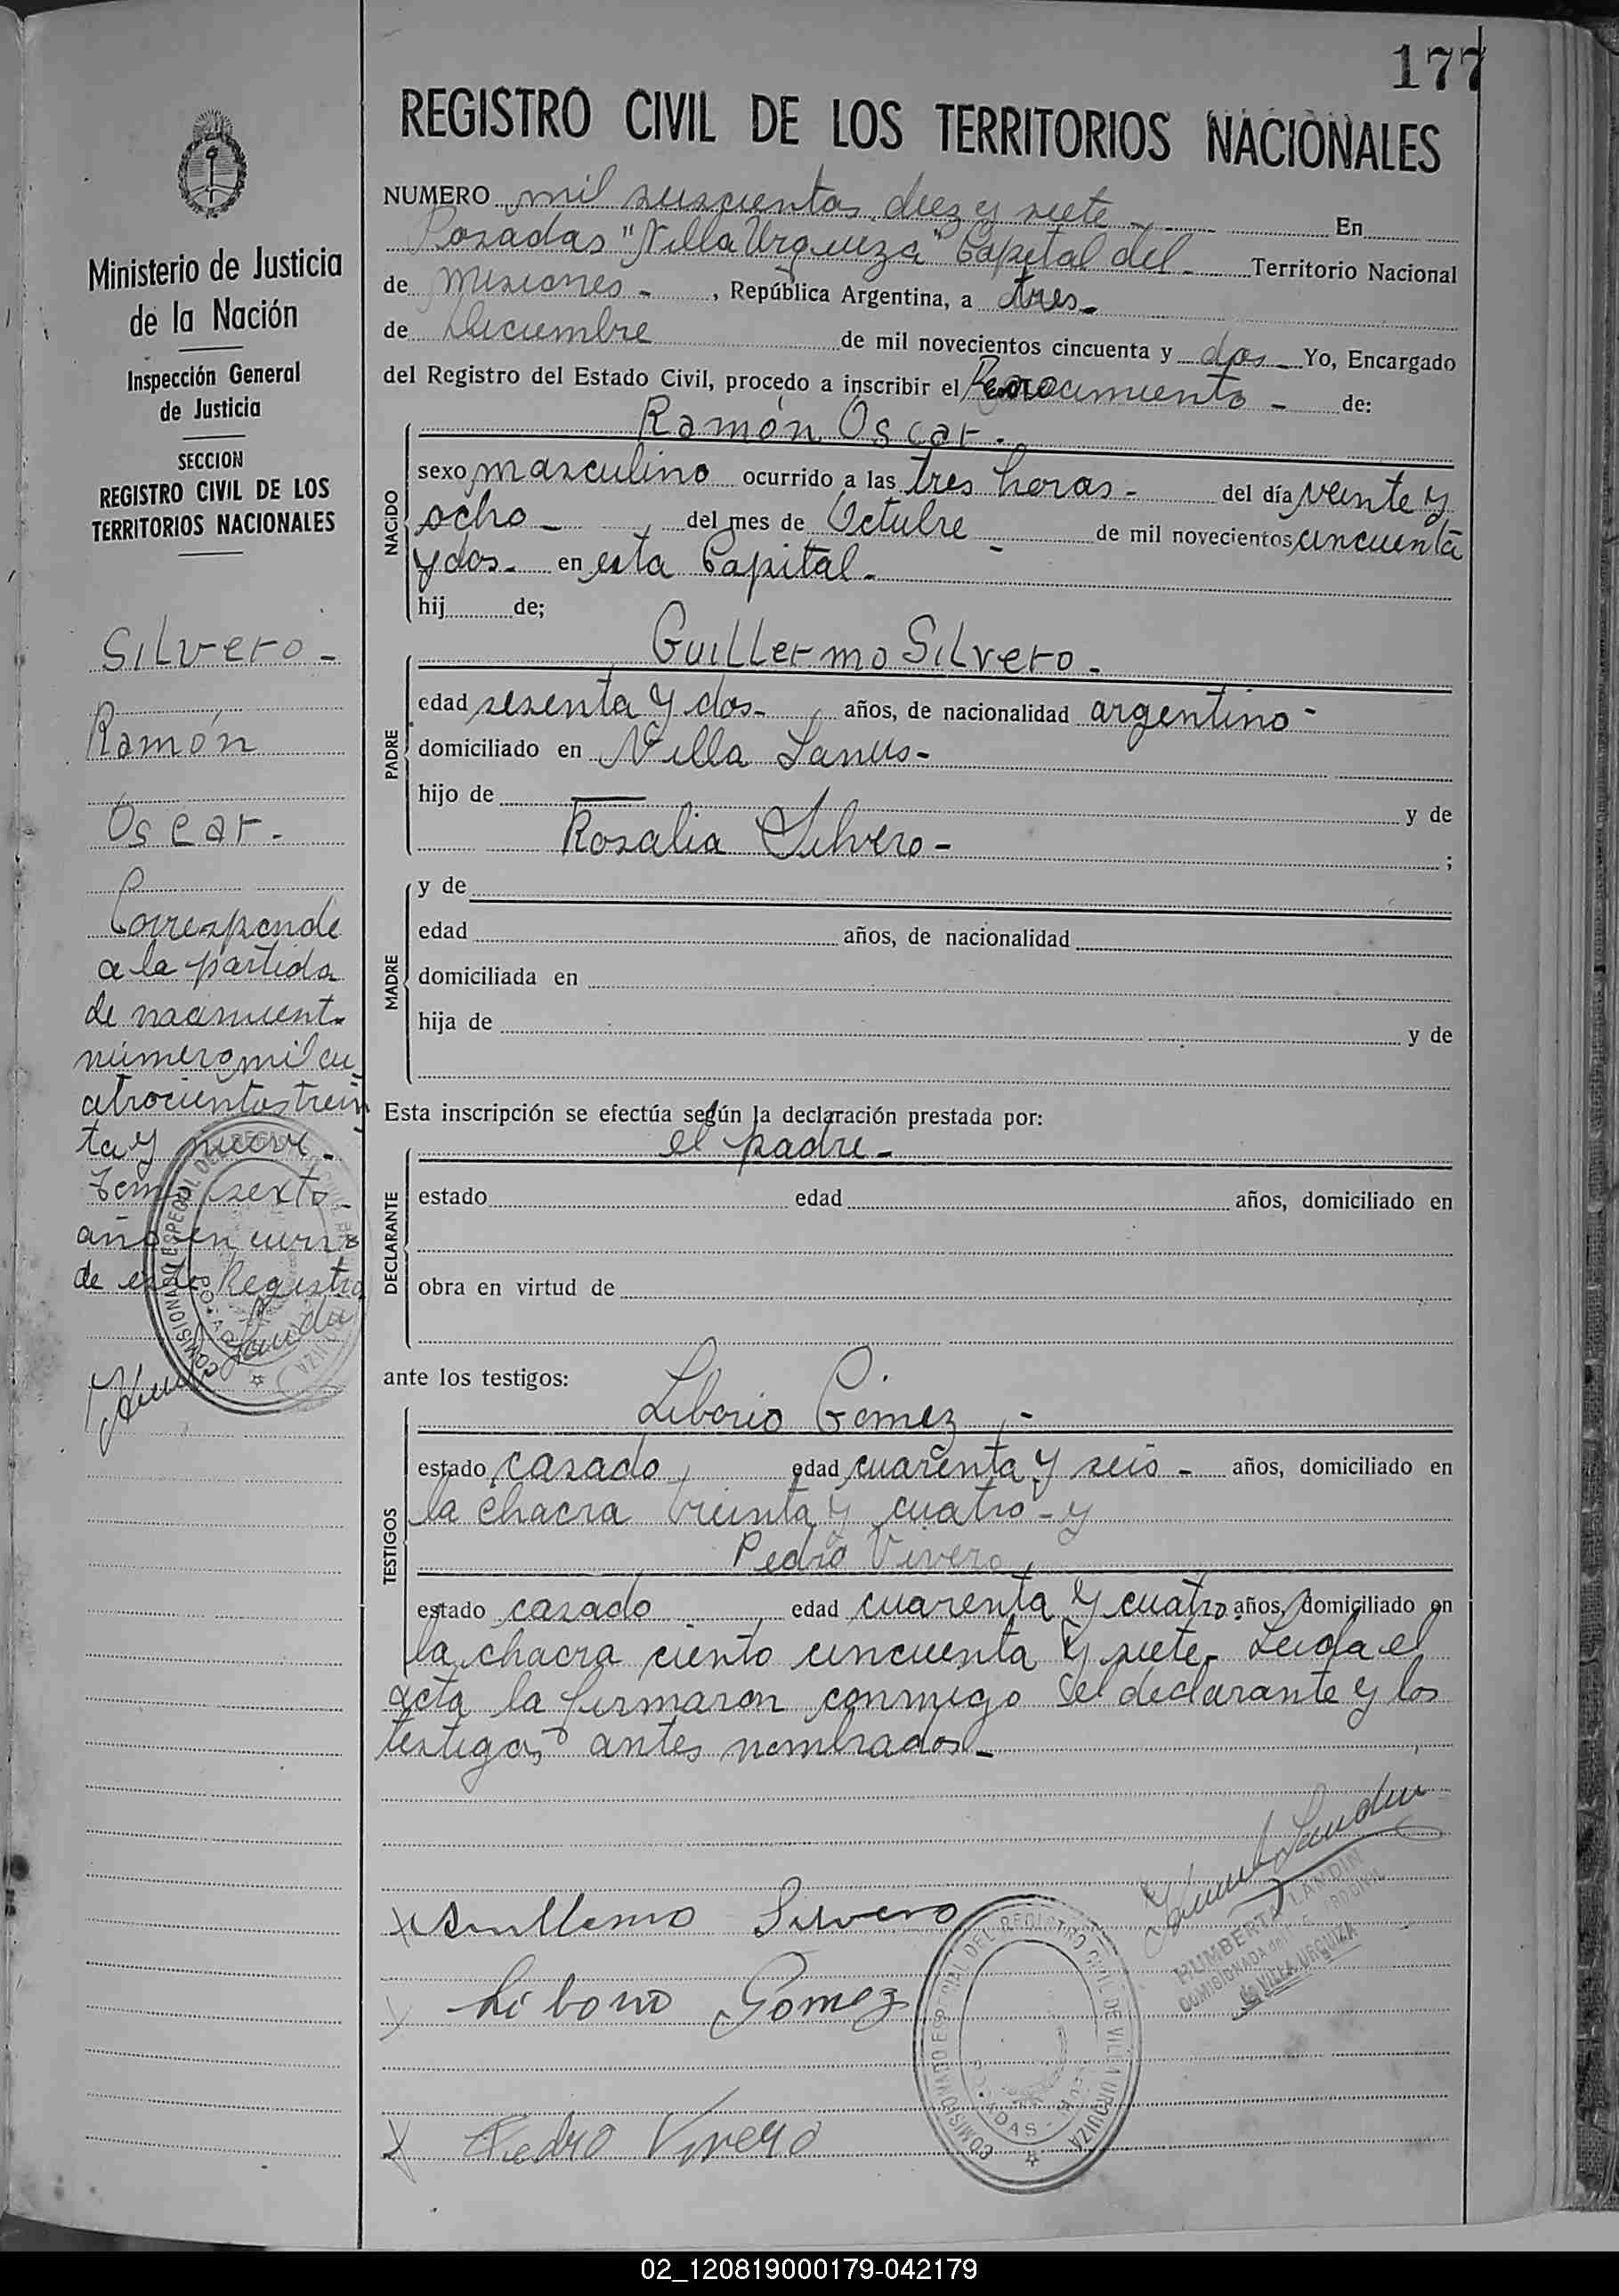 177
REGISTRO CIVIL DE LOS TERRITORIOS NACIONALES
Ministerio de Justicia
de la Nación
Inspección General
de Justicia
SECCION
REGISTRO CIVIL DE LOS
TERRITORIOS NACIONALES
Silvero -
Ramón
Oscar -
Corresponde
a la partida
de nacimiento
número mil cu
atrocientos trein
ta y nueve -
tomo sexto -
año en curso
de este Registro
NUMERO mil seiscientos diez y siete - En
Posadas "Villa Urquiza" Capital del - Territorio Nacional
de Misiones - , República Argentina, a tres -
de Diciembre de mil novecientos cincuenta y dos - Yo, Encargado
del Registro del Estado Civil, procedo a inscribir el Reconocimiento - de:
NACIDO
Ramón Oscar -
sexo masculino ocurrido a las tres horas - del día veinte y
ocho - del mes de Octubre - de mil novecientos cincuenta
y dos - en esta Capital -
hij de;
PADRE
Guillermo Silvero -
edad sesenta y dos - años, de nacionalidad argentino -
domiciliado en Villa Lanus -
hijo de — y de
Rosalia Silvero - ;
MADRE
y de
edad años, de nacionalidad
domiciliada en
hija de y de
Esta inscripción se efectúa según la declaración prestada por:
DECLARANTE
el padre -
estado edad años, domiciliado en
obra en virtud de
ante los testigos:
TESTIGOS
Liborio Gómez -
estado casado, edad cuarenta y seis - años, domiciliado en
la chacra treinta y cuatro - y
Pedro Vivero
estado casado edad cuarenta y cuatro años, domiciliado en
la chacra ciento cincuenta y siete - Leida el
acta la firmaron conmigo el declarante y los
testigos antes nombrados -
x Guillermo Silvero
x Liborio Gomez
x Pedro Vivero
HUMBERTA LANDIN
COMISIONADA
de VILLA URQUIZA
COMISIONADO ESPECIAL DEL REGISTRO CIVIL DE VILLA URQUIZA
02_120819000179-042179